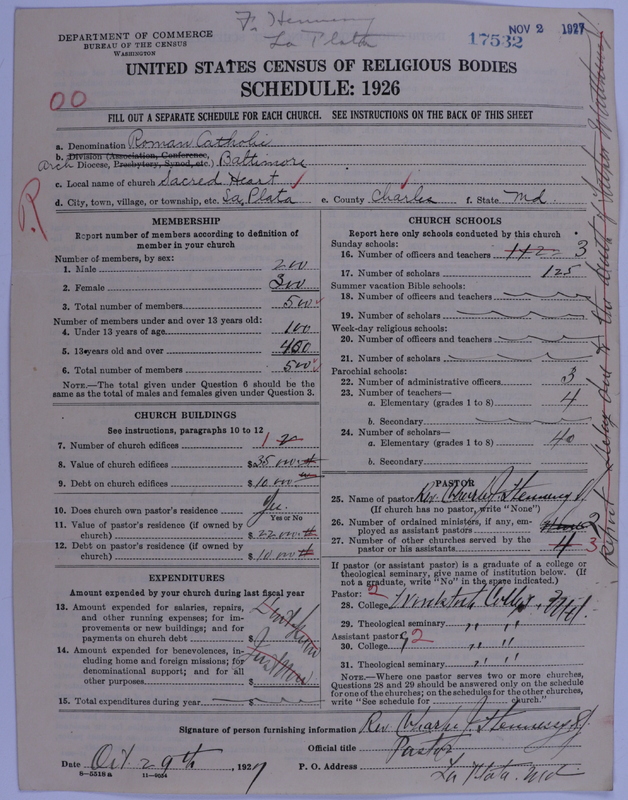 F. Hennessy
La Plata
DEPARTMENT OF COMMERCE
BUREAU OF THE CENSUS
WASHINGTON
17532
NOV 2 1927
UNITED STATES CENSUS OF RELIGIOUS BODIES
SCHEDULE: 1926
00
FILL OUT A SEPARATE SCHEDULE FOR EACH CHURCH. SEE INSTRUCTIONS ON THE BACK OF THIS SHEET
a. Denomination Roman Catholic
b. Division (Association, Conference,
Arch Diocese, Presbytery, Synod, etc.) Baltimore
c. Local name of church Sacred Heart
d. City, town, village, or township, etc. La Plata e. County Charles f. State Md.
R
MEMBERSHIP
Report number of members according to definition of
member in your church
Number of members, by sex:
1. Male 200
2. Female 300
3. Total number of members 500
Number of members under and over 13 years old:
4. Under 13 years of age 100
5. 13 years old and over 400
6. Total number of members 500
NOTE.—The total given under Question 6 should be
same as the total of males and females given under Question 3.
CHURCH BUILDINGS
See instructions, paragraphs 10 to 12
7. Number of church edifices 1 2
8. Value of church edifices $35 000
9. Debt on church edifices $10 000
10. Does church own pastor's residence? Yes.
Yes or No
11. Value of pastor's residence (if owned by
church) $22 000
12. Debt on pastor's residence (if owned by
church) $10 000
EXPENDITURES
Amount expended by your church during last fiscal year
13. Amount expended for salaries, repairs,
and other running expenses; for im-
provements or new buildings; and for
payments on church debt $
14. Amount expended for benevolences, in-
cluding home and foreign missions; for
denominational support; and for all
other purposes $
15. Total expenditures during year
CHURCH SCHOOLS
Report here only schools conducted by this church
Sunday schools:
16. Number of officers and teachers 3
17. Number of scholars 125
Summer vacation Bible schools:
18. Number of officers and teachers
19. Number of scholars
Week-day religious schools:
20. Number of officers and teachers
21. Number of scholars
Parochial schools:
22. Number of administrative officers 3
23. Number of teachers—
a. Elementary (grades 1 to 8) 4
b. Secondary
24. Number of scholars—
a. Elementary (grades 1 to 8) 40
b. Secondary
PASTOR
25. Name of pastor Rev. Charles J. Hennessy S.J.
(If church has no pastor, write "None")
26. Number of ordained ministers, if any, em-
ployed as assistant pastors 2
27. Number of other churches served by the
pastor or his assistants 4 3
If pastor (or assistant pastor) is a graduate of a college or
theological seminary, give name of institution below. (If
not a graduate, write "No" in the space indicated.)
Pastor: 2
28. College Woodstock College, Md.
29. Theological seminary " "
Assistant pastor: 2
30. College " "
31. Theological seminary " "
NOTE.—Where one pastor serves two or more churches,
Questions 28 and 29 should be answered only on the schedule
for one of the churches; on the schedules for the other churches,
write "See schedule for church."
Signature of person furnishing information Rev. Charles J. Hennessy S.J.
Official title Pastor
Date Oct. 29th, 1927 P. O. Address La Plata. Md
8—5518 a 11—9034
Report delay due to the death of Father